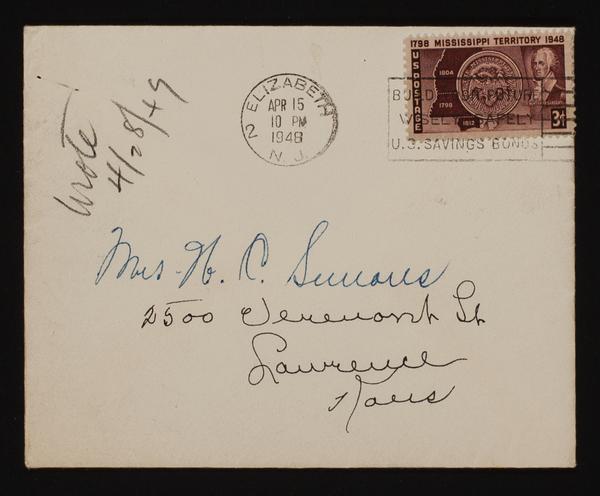 1798 MISSISSIPPI TERRITORY 1948
U S POSTAGE
1804
1798
1812
3¢
ELIZABETH
2
APR 15
10 PM
1948
N. J.
BUILD YOUR FUTURE
WISELY SAFELY
U.S. SAVINGS BONDS
Wrote
4/28/49
Mrs H. C. Simons
2500 Vermont St
Lawrence
Kans